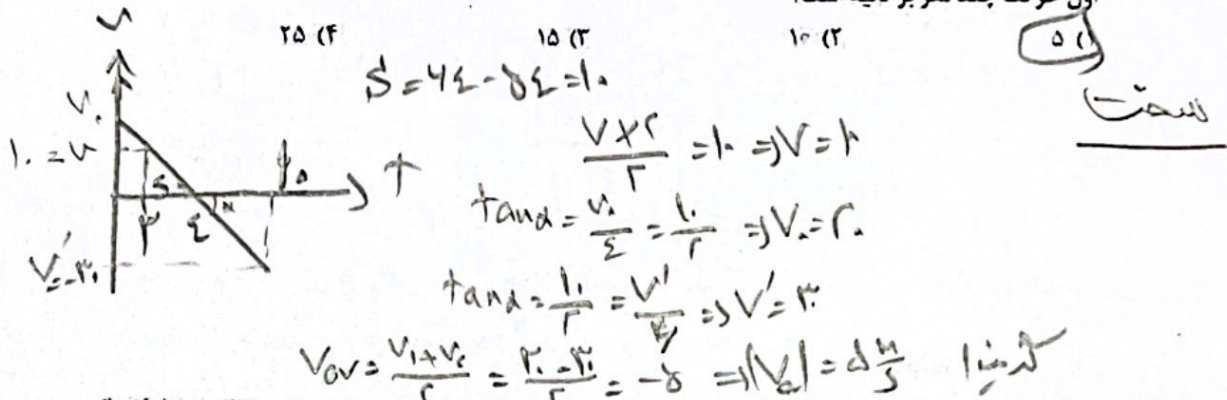 ۴) ۲۵ ۳) ۱۵ ۲) ۱۰ ۱) ۵
سخت
S = 64 - 54 = 10
V×2/2 = 10 ⇒ V = 10
tanα = V₀/4 = 10/2 ⇒ V₀ = 20
tanα = 10/2 = V'/6 ⇒ V' = 30
Vav = V₁+V₂/2 = 20-30/2 = -5 ⇒ |Vav| = 5 m/s گزینه ۱
V
V₀
10 = V
t
V' = -30